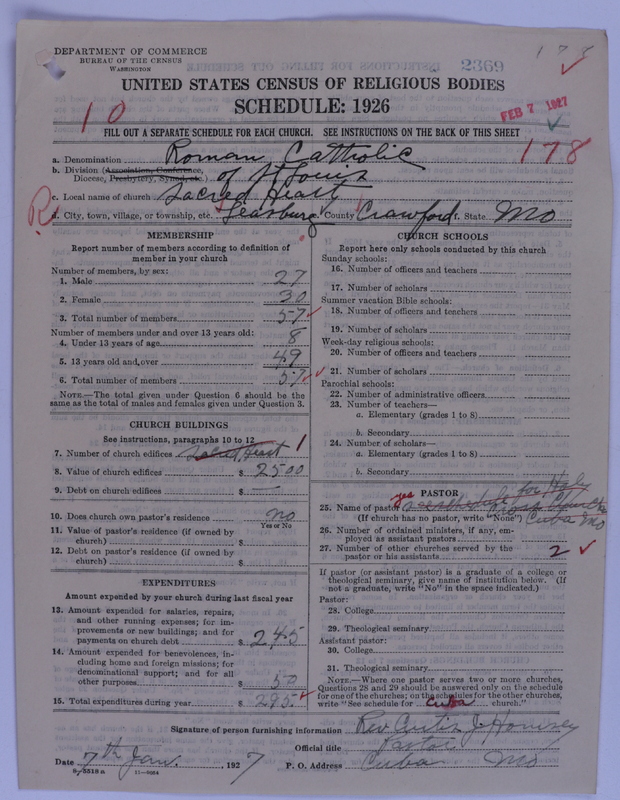 DEPARTMENT OF COMMERCE
BUREAU OF THE CENSUS
WASHINGTON
2369
178
UNITED STATES CENSUS OF RELIGIOUS BODIES
SCHEDULE: 1926
FEB 7 1927
10
FILL OUT A SEPARATE SCHEDULE FOR EACH CHURCH. SEE INSTRUCTIONS ON THE BACK OF THIS SHEET
178
a. Denomination Roman Catholic
b. Division (Association, Conference, Diocese, Presbytery, Synod, etc.) of St Louis
c. Local name of church Sacred Heart
R
d. City, town, village, or township, etc. Leasburg County Crawford f. State Mo
MEMBERSHIP
Report number of members according to definition of member in your church
Number of members, by sex:
1. Male 27
2. Female 30
3. Total number of members 57
Number of members under and over 13 years old:
4. Under 13 years of age 8
5. 13 years old and over 49
6. Total number of members 57
NOTE.—The total given under Question 6 should be the same as the total of males and females given under Question 3.
CHURCH BUILDINGS
See instructions, paragraphs 10 to 12
7. Number of church edifices Sacred Heart 1
8. Value of church edifices $ 2500
9. Debt on church edifices $ —
10. Does church own pastor's residence no
Yes or No
11. Value of pastor's residence (if owned by church) $
12. Debt on pastor's residence (if owned by church) $
EXPENDITURES
Amount expended by your church during last fiscal year
13. Amount expended for salaries, repairs, and other running expenses; for improvements or new buildings; and for payments on church debt $ 245
14. Amount expended for benevolences, including home and foreign missions; for denominational support; and for all other purposes $ 50
15. Total expenditures during year $ 295
CHURCH SCHOOLS
Report here only schools conducted by this church
Sunday schools:
16. Number of officers and teachers
17. Number of scholars
Summer vacation Bible schools:
18. Number of officers and teachers
19. Number of scholars
Week-day religious schools:
20. Number of officers and teachers
21. Number of scholars
Parochial schools:
22. Number of administrative officers
23. Number of teachers—
a. Elementary (grades 1 to 8)
b. Secondary
24. Number of scholars—
a. Elementary (grades 1 to 8)
b. Secondary
yes PASTOR
25. Name of pastor see schedule for Holy Cross Church Cuba Mo
(If church has no pastor, write "None")
26. Number of ordained ministers, if any, employed as assistant pastors
27. Number of other churches served by the pastor or his assistants 2
If pastor (or assistant pastor) is a graduate of a college or theological seminary, give name of institution below. (If not a graduate, write "No" in the space indicated.)
Pastor:
28. College
29. Theological seminary
Assistant pastor:
30. College
31. Theological seminary
NOTE.—Where one pastor serves two or more churches, Questions 28 and 29 should be answered only on the schedule for one of the churches; on the schedules for the other churches, write "See schedule for Cuba church."
Signature of person furnishing information Rev Curtis J.
Official title Pastor
Date 7th Jan. 1927
P. O. Address Cuba Mo
8-5518a 11-9064